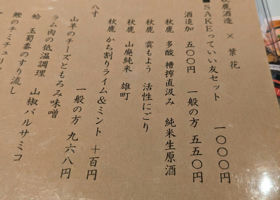 秋鹿酒造 × 繁花
SAKEっていい友セット 一〇〇〇円
酒造加 五〇〇円 一般の方 五五〇円
秋鹿 多酸 槽搾直汲み 純米生原酒
秋鹿 雲もよう 活性にごり
秋鹿 山廃純米 雄町
秋鹿 かち割りライム&ミント +百円
八寸 一般の方 九六八円
山羊のチーズともろみ味噌
ラム肉の低温調理 山椒バルサミコ
蛤 玉野菜のすり流し
鯉のチミチュリ